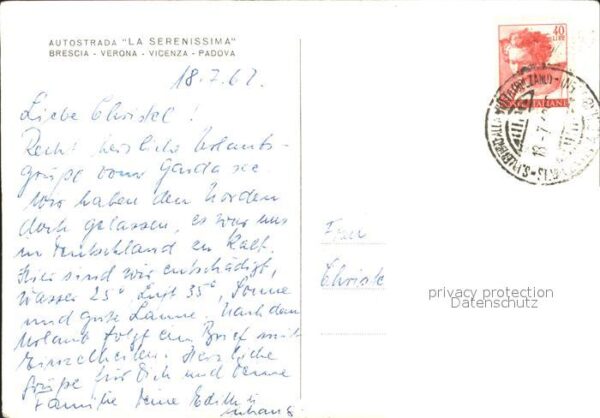 AUTOSTRADA "LA SERENISSIMA"
BRESCIA - VERONA - VICENZA - PADOVA
40
LIRE
POSTE ITALIANE
18.7.62.
Liebe Christel!
Recht herzliche Urlaubs-
grüße vom Garda see
Wir haben den Norden
doch gelassen, es war uns
in Deutschland zu kalt.
Hier sind wir entschädigt,
Wasser 25° Luft 35°, Sonne
und gute Laune. Nach dem
Urlaub folgt ein Brief mit
Einzelheiten. Herzliche
Grüße für Dich und Deine
Familie Deine Edith
Frau
Christe
privacy protection
Datenschutz